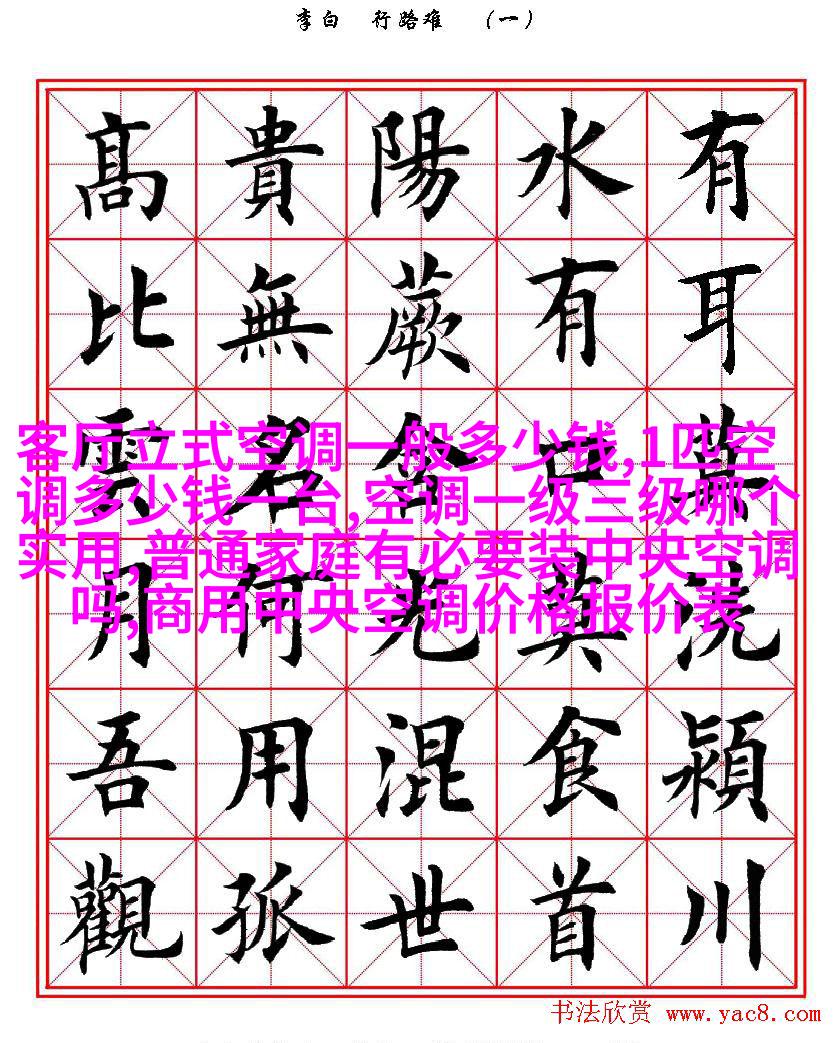 李白 行路难 （一）
有耳莫洗潁川
水有口莫食首
陽蕨含光混世
貴無名何用孤
高比雲月吾觀
客厅立式空调一般多少钱,1匹空
调多少钱一台,空调一级三级哪个
实用,普通家庭有必要装中央空调
吗,商用中央空调价格报价表
书法欣赏 www.yac8.com